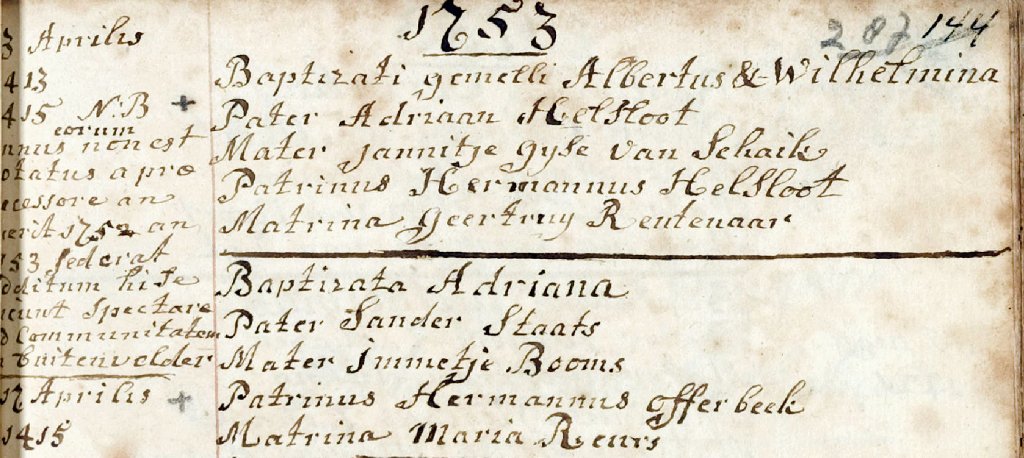 1753
287 144
3 Aprilis
413
415 N:B +
eorum
nnus non est
otatus a præ
ecessore an
uerit 1752 an
753 sed erat
dditum hi se
icunt spectare
d Communitatem
n buitenvelder
Baptizati gemelli Albertus & Wilhelmina
Pater Adriaan Helsloot
Mater Jannitje Gyse van Schaik
Patrinus Hermannus Helsloot
Matrina Geertruy Rentenaar
17 Aprilis +
1415
Baptizata Adriana
Pater Sander Staats
Mater Immetje Booms
Patrinus Hermannus Offerbeek
Matrina Maria Reurs